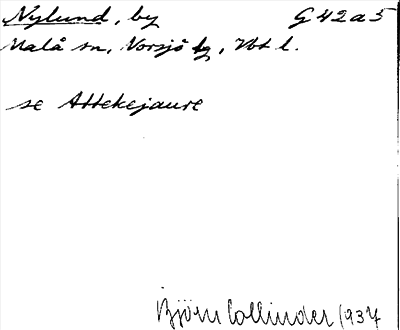 Nylund, by G42a5
Malå sn, Norsjö tg, Vbt l.
se Attekejaure
Björn Collinder 1937